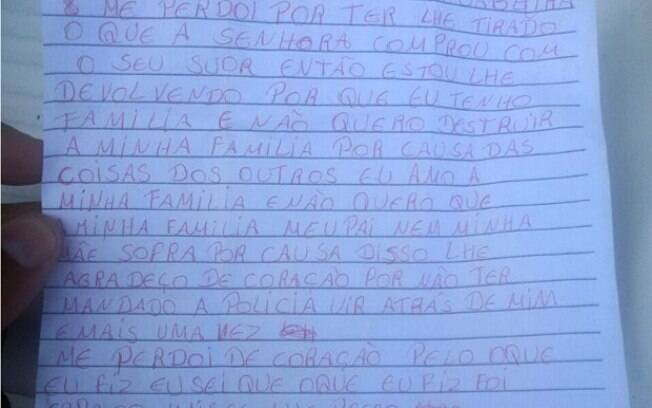 ME PERDOI POR TER LHE TIRADO
O QUE A SENHORA COMPROU COM
O SEU SUOR ENTÃO ESTOU LHE
DEVOLVENDO POR QUE EU TENHO
FAMILIA E NÃO QUERO DESTRUIR
A MINHA FAMILIA POR CAUSA DAS
COISAS DOS OUTROS EU AMO A
MINHA FAMILIA E NÃO QUERO QUE
A MINHA FAMILIA MEU PAI NEM MINHA
MÃE SOFRA POR CAUSA DISSO LHE
AGRADEÇO DE CORAÇÃO POR NÃO TER
MANDADO A POLICIA VIR ATRÁS DE MIM
E MAIS UMA VEZ
ME PERDOI DE CORAÇÃO PELO OQUE
EU FIZ EU SEI QUE OQUE EU FIZ FOI